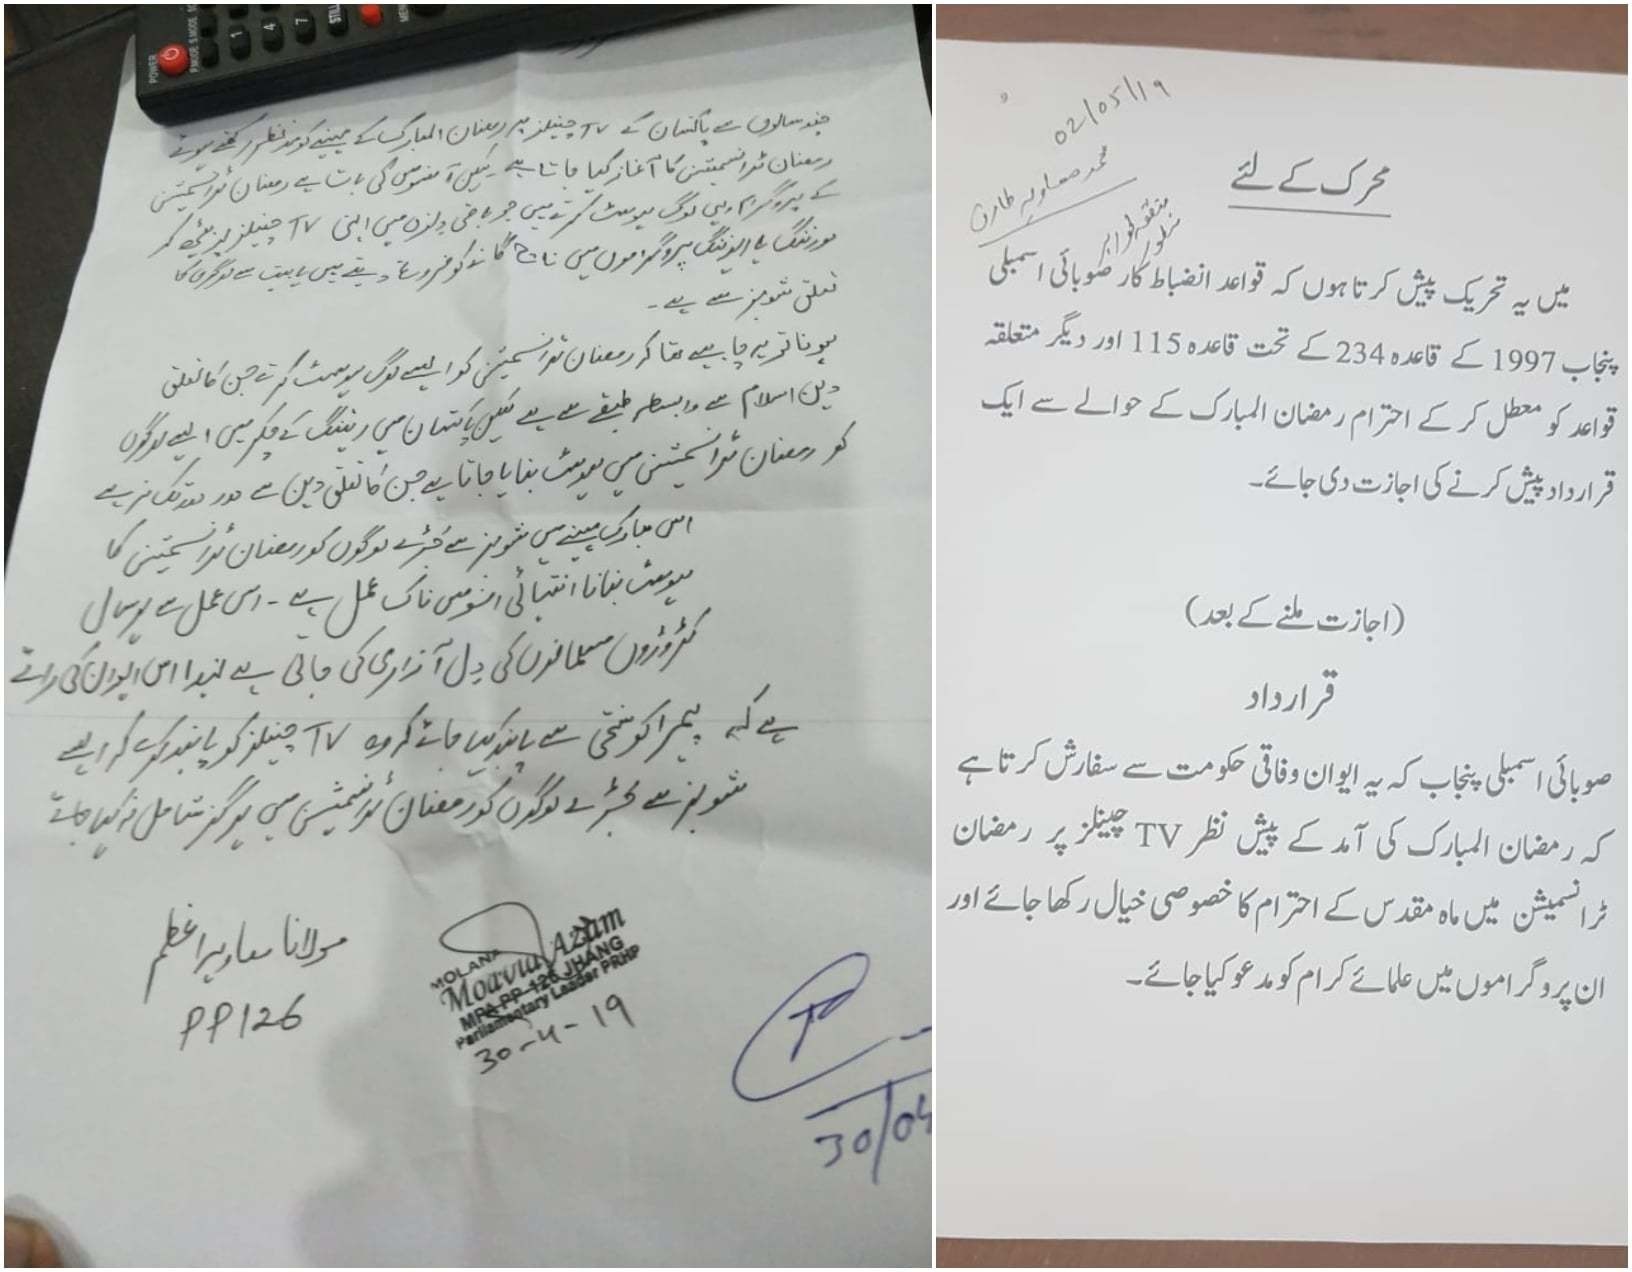 POWER
1
4
7
STILL
چند سالوں سے پاکستان کے TV چینلز پر رمضان المبارک کے مہینے کو مدنظر رکھتے ہوئے
رمضان ٹرانسمیشن کا آغاز کیا جاتا ہے۔ لیکن افسوس کی بات ہے رمضان ٹرانسمیشن
کے پروگرام وہی لوگ ہوسٹ کرتے ہیں جو باقی دنوں میں اپنی TV چینلز پر بیٹھ کر
مورننگ یا ایوننگ پروگراموں میں ناچ گانے کو فروغ دیتے ہیں یا بہت سے لوگوں کا
تعلق شوبز سے ہے۔
ہونا تو یہ چاہیے تھا کہ رمضان ٹرانسمیشن کو ایسے لوگ ہوسٹ کرتے جن کا تعلق
دین اسلام سے وابسطہ طبقے سے ہے لیکن پاکستان میں ریٹنگ کے چکر میں ایسے لوگوں
کو رمضان ٹرانسمیشن میں ہوسٹ بنایا جاتا ہے جن کا تعلق دین سے دور دور تک نہ ہے
اس مبارک مہینے میں شوبز سے جڑے لوگوں کو رمضان ٹرانسمیشن کا
ہوسٹ بنانا انتہائی افسوس ناک عمل ہے۔ اس عمل سے ہر سال
کڑوڑوں مسلمانوں کی دل آزاری کی جاتی ہے لہذا اس ایوان کی رائے
ہے کہ پیمرا کو سختی سے پابند کیا جائے کہ وہ TV چینلز کو پابند کرے کہ ایسے
شوبز سے جڑے لوگوں کو رمضان ٹرانسمیشن میں ہرگز شامل نہ کیا جائے
مولانا معاویہ اعظم
PP126
MOLANA
Moavia Azam
MPA PP-126 JHANG
Parliamentary Leader PRHP
30-4-19
30/04
02/05/19
محمد معاویہ طارق
متفقہ طور پر
منظور
محرک کے لئے
میں یہ تحریک پیش کرتا ہوں کہ قواعد انضباط کار صوبائی اسمبلی
پنجاب 1997 کے قاعدہ 234 کے تحت قاعدہ 115 اور دیگر متعلقہ
قواعد کو معطل کر کے احترام رمضان المبارک کے حوالے سے ایک
قرارداد پیش کرنے کی اجازت دی جائے۔
(اجازت ملنے کے بعد)
قرارداد
صوبائی اسمبلی پنجاب کہ یہ ایوان وفاقی حکومت سے سفارش کرتا ہے
کہ رمضان المبارک کی آمد کے پیش نظر TV چینلز پر رمضان
ٹرانسمیشن میں ماہ مقدس کے احترام کا خصوصی خیال رکھا جائے اور
ان پروگراموں میں علمائے کرام کو مدعو کیا جائے۔